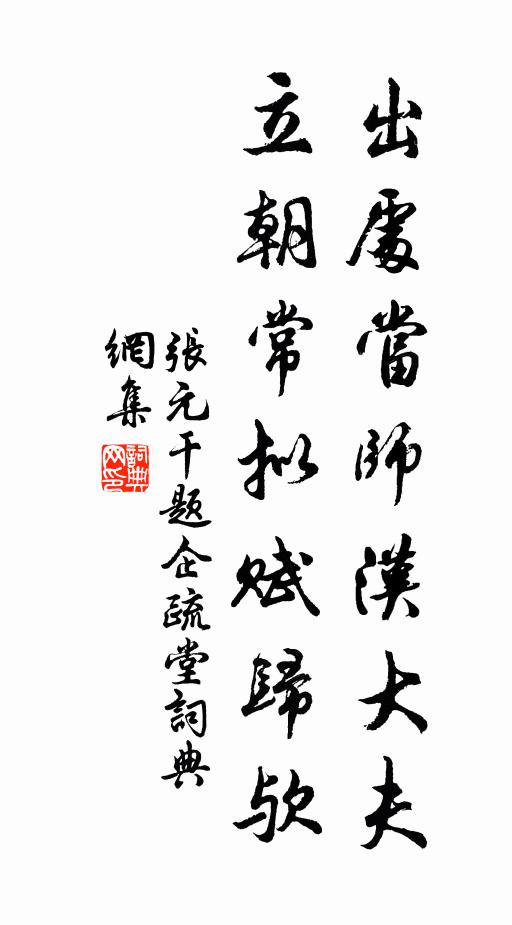 出處當師漢大夫
立朝常拟赋歸欤
張元干题企疏堂詞典
網集
詞典网印